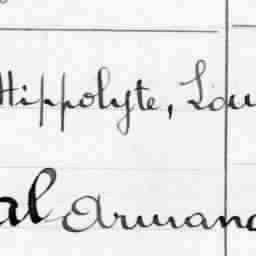 Hippolyte, Lou
al Armand